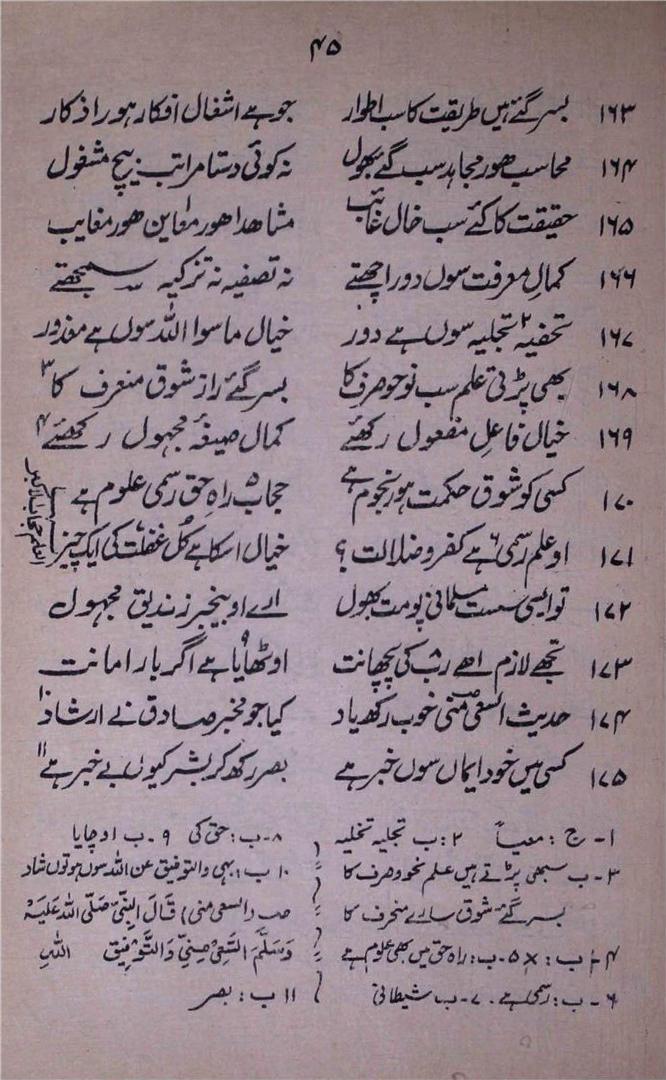 ۴۵
۱۶۳ بسر گئے ہیں طریقت کا سب اطوار جو ہے اشغال افکار ہور اذکار
۱۶۴ محاسب ھور مجاہد سب گئے بھول نہ کوئی دستا مراتب بیچ مشغول
۱۶۵ حقیقت کا گئے سب خال غائب مشاھدا ھور معاین ھور مغایب
۱۶۶ کمالِ معرفت سوں دور اچھتے نہ تصفیہ نہ تزکیہ سمجھتے
۱۶۷ تحفیہ۲ تجلیہ سوں ہے دور خیال ماسوا اللہ سوں ہے معذور
۱۶۸ بھی پڑتی علم سب نوحو صرف کا بسر گئے راز شوق منعرف کا۳
۱۶۹ خیال فاعل مفعول رکھئے کمال صیغۂ مجہول رکھئے۴
۱۷۰ کسی کو شوق حکمت ہور نجوم ہے حجاب۵ راہِ حق رسمی علوم ہے
۱۷۱ او علم رسمی۶ ہے کفر و ضلالت؟ خیال اسکا ہے کل غفلت۷ کی ایک چیز
العلم حجاب الاکبر
۱۷۲ تو ایسی سست مسلمانی پو مت بھول ارے او بیخبر زندیق مجہول
۱۷۳ تجھے لازم اھے رب۸ کی پچھانت اوٹھایا۹ ہے اگر بار امانت
۱۷۴ حدیث السعی منی خوب رکھ یاد کیا جو مخبر صادق نے ارشاد۱۰
۱۷۵ کسی میں خود ایماں سوں خبر ہے بصر رکھ کر بشر کیوں بے خبر ہے۱۱
۱- ج: معیاً ۲: ب تجلیہ تخلیہ
۳- ب سبھی پڑتے ہیں علم نحو و صرف کا
بسر گئے شوق سارے منحرف کا
۴- ب: × ۵- ب: راہ حق میں بھی علوم ہے
۶- ب: رسمی ہے۔ ۷- ب شیطانی
۸- ب: حق کی ۹- ب اوچایا
۱۰ ب: یہی والتوفیق عن اللہ سوں ہو توں شاد
صب (السعی منی) قَالَ النَّبِیُّ صَلَّی اللہ عَلَیْہِ
وَسَلَّمَ السَّعْیُ مِنِّیْ وَالتَّوْفِیْق اللہِ
۱۱ ب: بصر